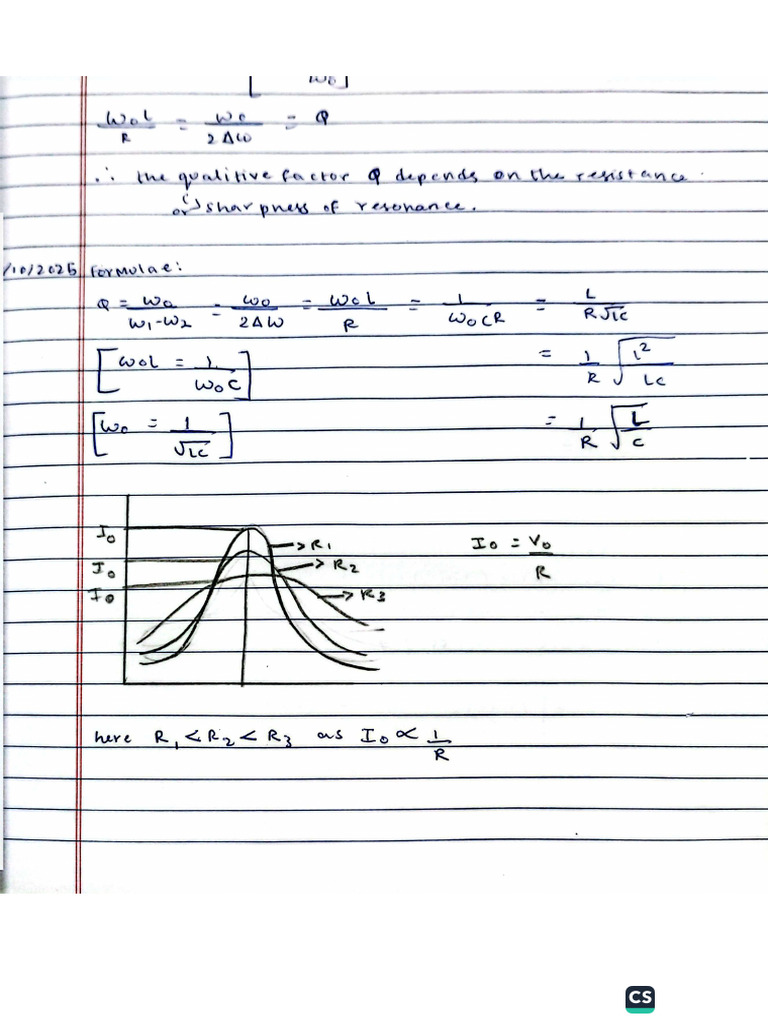 ω₀
ω₀L / R = ω₀ / 2Δω = Q
∴ the qualitive factor Q depends on the resistance.
or sharpness of resonance.
/10/2025 Formulae:
Q = ω₀ / ω₁-ω₂ = ω₀ / 2Δω = ω₀L / R = 1 / ω₀CR = L / R√LC
[ω₀L = 1 / ω₀C] = 1/R √(L² / LC)
[ω₀ = 1 / √LC] = 1/R √(L / C)
I₀
R₁
I₀ = V₀ / R
I₀
R₂
I₀
R₃
here R₁ < R₂ < R₃ as I₀ ∝ 1 / R
CS